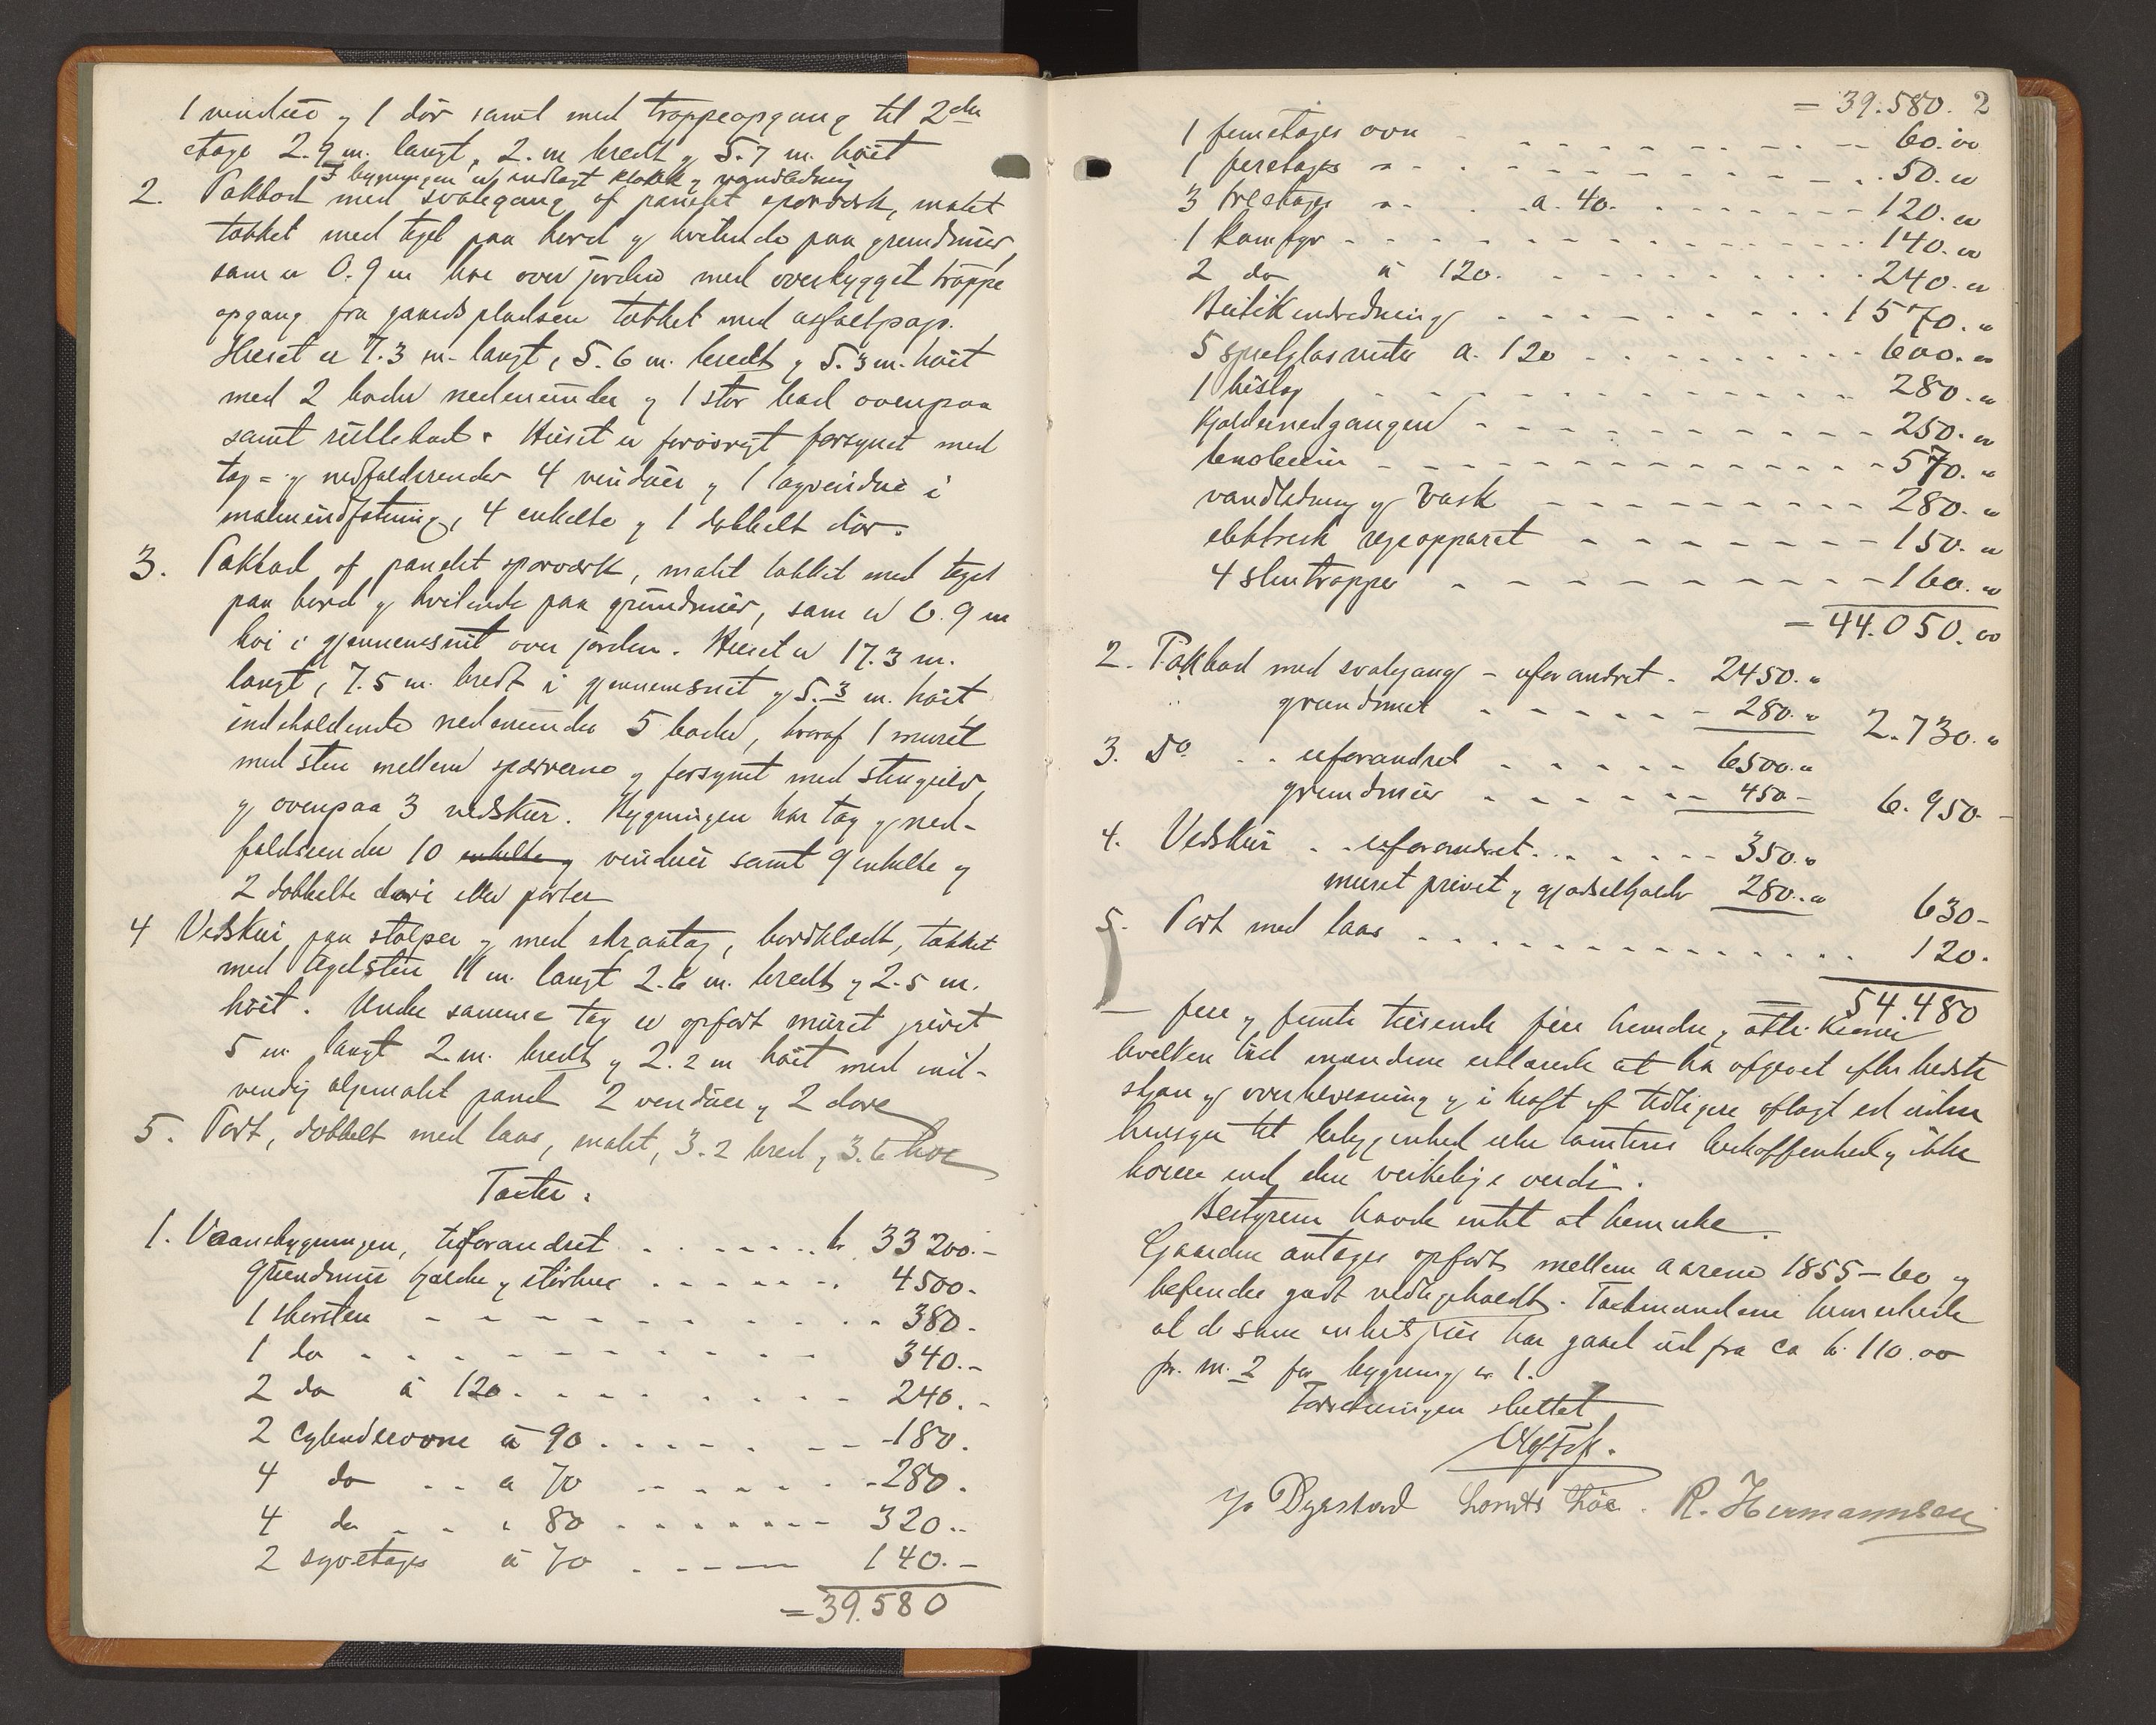 1 vindue og 1 dør samt med trappeopgang til 2den
etage 2.9 m. langt, 2. m bredt og 5.7 m. høit
I bygningen er indlagt kloakk og vandledning
2. Pakbod med svalegang af panelet sparværk, malet
tækket med tegl paa bord og hvilende paa grundmur,
som er 0.9 m høi over jorden med overbygget trappe
opgang fra gaardspladsen tækket med asfaltpap.
Huset er 7.3 m. langt, 5.6 m. bredt og 5.3 m. høit
med 2 boder nedenunder og 1 stor bod ovenpaa
samt rullebod. Huset er forøvrigt forsynet med
tag= og nedfaldsrender 4 vinduer og 1 tagvindue i
malmindfatning, 4 enkelte og 1 dobbelt dør.
3. Pakbod af panelet sparværk, malet tækket med tegl
paa bord og hvilende paa grundmur, som er 0.9 m
høi i gjennemsnit over jorden. Huset er 17.3 m.
langt, 7.5 m. bredt i gjennemsnit og 5.3 m. høit
indeholdende nedenunder 5 boder, hvoraf 1 muret
med sten mellem sparverne og forsynet med stengulv
og ovenpaa 3 vedskur. Bygningen har tag og ned-
faldsrender 10 enkelte og vinduer samt 9 enkelte og
2 dobbelte døre eller porter
4 Vedskur paa stolper og med skraatag, bordklædt, tækket
med teglsten 11 m. langt 2.6 m. bredt og 2.5 m.
høit. Under samme tag er opført muret privet
5 m. langt 2. m. bredt og 2.2 m høit med ind-
vendig oljemalet panel 2 vinduer og 2 døre
5. Port, dobbelt med laas, malet, 3.2 bred, 3.6 høi
Takter.
1. Vaanebygningen, uforandret . . . . . kr 33 200.-
Grundmur kjælder og . . . . . . 4500.-
1 skorsten - - - - - - - - - 380.-
1 do - - - - - - - - 340.-
2 do á 120 - - - - - - - 240.-
2 Cylinderovne á 90 . . . . . - - 180.
4 do . . a 70 . . . . . . 280.
4 do . . . 80 . . . . . . . 320.-
2 syvetages á 70 . . - - - 140.-
= 39.580
= 39.580. 2
1 femetages ovn - - - - - - - - 60.00
1 fireetages " - - - - - - - - 50.00
3 treetages " . . a. 40. - - - - - 120.00
1 Komfyr - - - - - - - - - - 140.00
2 do á 120. - - - - - - - 240.00
Butikindredning - - - - - - - 1570.00
5 speilglasruter a. 120 - - - - - - 600.00
1 bislag - - - - - - - - - 280.00
Kjældernedgangen - - - - - - - - 250.00
linoleum - - - - - - - - - - 570.00
vandledning og Vask - - - - - - - 280.00
elektrisk apparat - - - - - - 150.00
4 stentrapper - - - - - - - - - 160.00
= 44.050.00
2. Pakbod med svalegang - uforandret - 2450.00
grundmur - - - - - - 280.00 2.730.00
3. Do . . uforandred . . . . . . 6500.00
grundmur - - - - - - 450- 6.950.-
4. Vedskur . . uforandret. . . . . . - 350.00
muret privet og gjødselkjælder 280.00 630-
5. Port med laas - - - - - - - - - 120.
= 54.480
fire og femti tusende fire hundre og otti Kroner
hvilken mændene erklærede at ha afgivet efter bedste
skjøn og overbevisning og i kraft af tidligere aflagt ed uden
hensyn til beliggenhed eller tomtens beskaffenhed og ikke
høiere end den virkelige verdi.
Bestyreren havde intet at bemerke.
Gaarden antages opført mellem aarene 1855-60 og
befindes godt vedligeholdt. Takstmændene bemerkede
at de som enhetspris har gaaet ud fra ca kr. 110.00
pr. m. 2 for bygning nr 1.
Forretningen sluttet
Jo Dyrstad Lornts Löe. R. Hermannsen